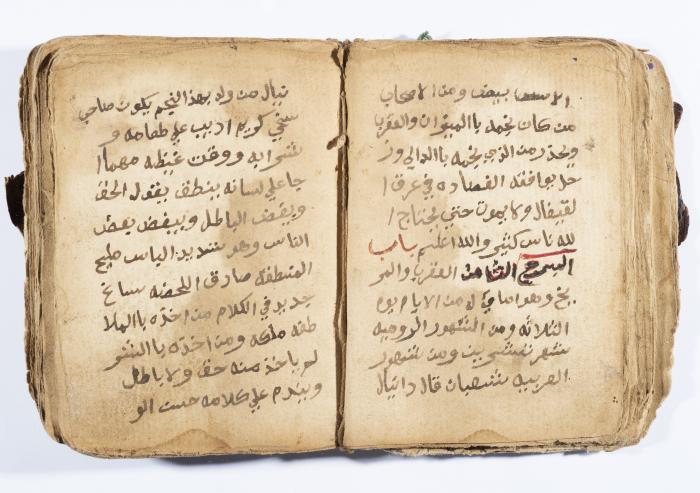 بيض ومن الاصحاب
من كان نجمه باالميزان والعقرب
ويحذر من الذي نجمه باالدالي وز
حل يوافقه الفصاده في عرق ا
لقيفال ولا يموت حتي يحتاج ا
لله ناس كثير والله اعلم باب
البرج الثامن العقرب والمر
يخ وهو مايي له من الايام يوم
الثلاثه ومن الشهور الروميه
شهر تشرين ومن شهور
العربيه شعبان قال دانيال
نيال من ولد بهذا النجم يكون صاحب
سخي كريم اديب علي طعامه و
شرابه ووقت غيظه مهما
جا علي لسانه ينطق يقول الحق
ويغض الباطل ويبغض بعض
الناس وهو شديد الباس مليح
المنطقه صادق اللحضه
جديد في الكلام من اخذه باالملا
طفه ملكه ومن اخذه باالشر
لم ياخذ منه حق ولا باطل
ويندم علي كلامه